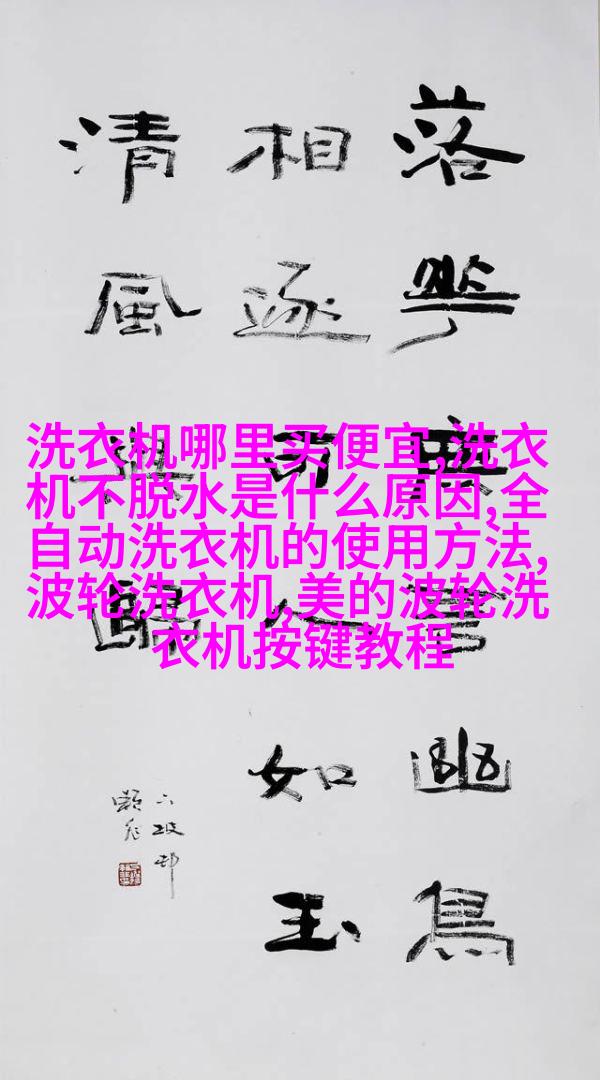 落華幽鳥
相逐可人如玉
清風與歸
洗衣机哪里买便宜,洗衣
机不脱水是什么原因,全
自动洗衣机的使用方法,
波轮洗衣机,美的波轮洗
衣机按键教程